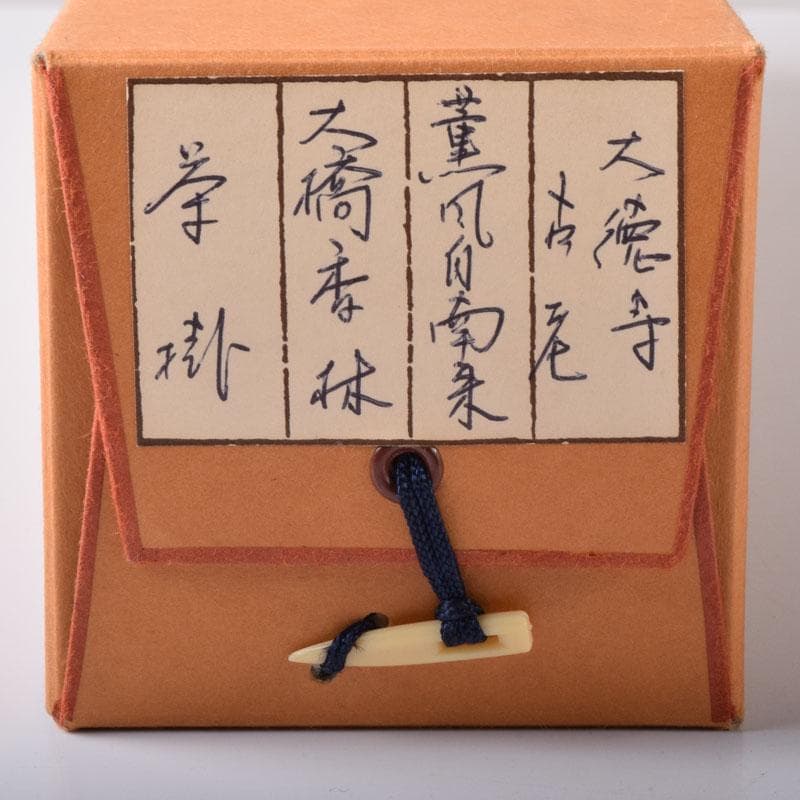 大徳寺
薫風自南来
大橋香林
茶掛